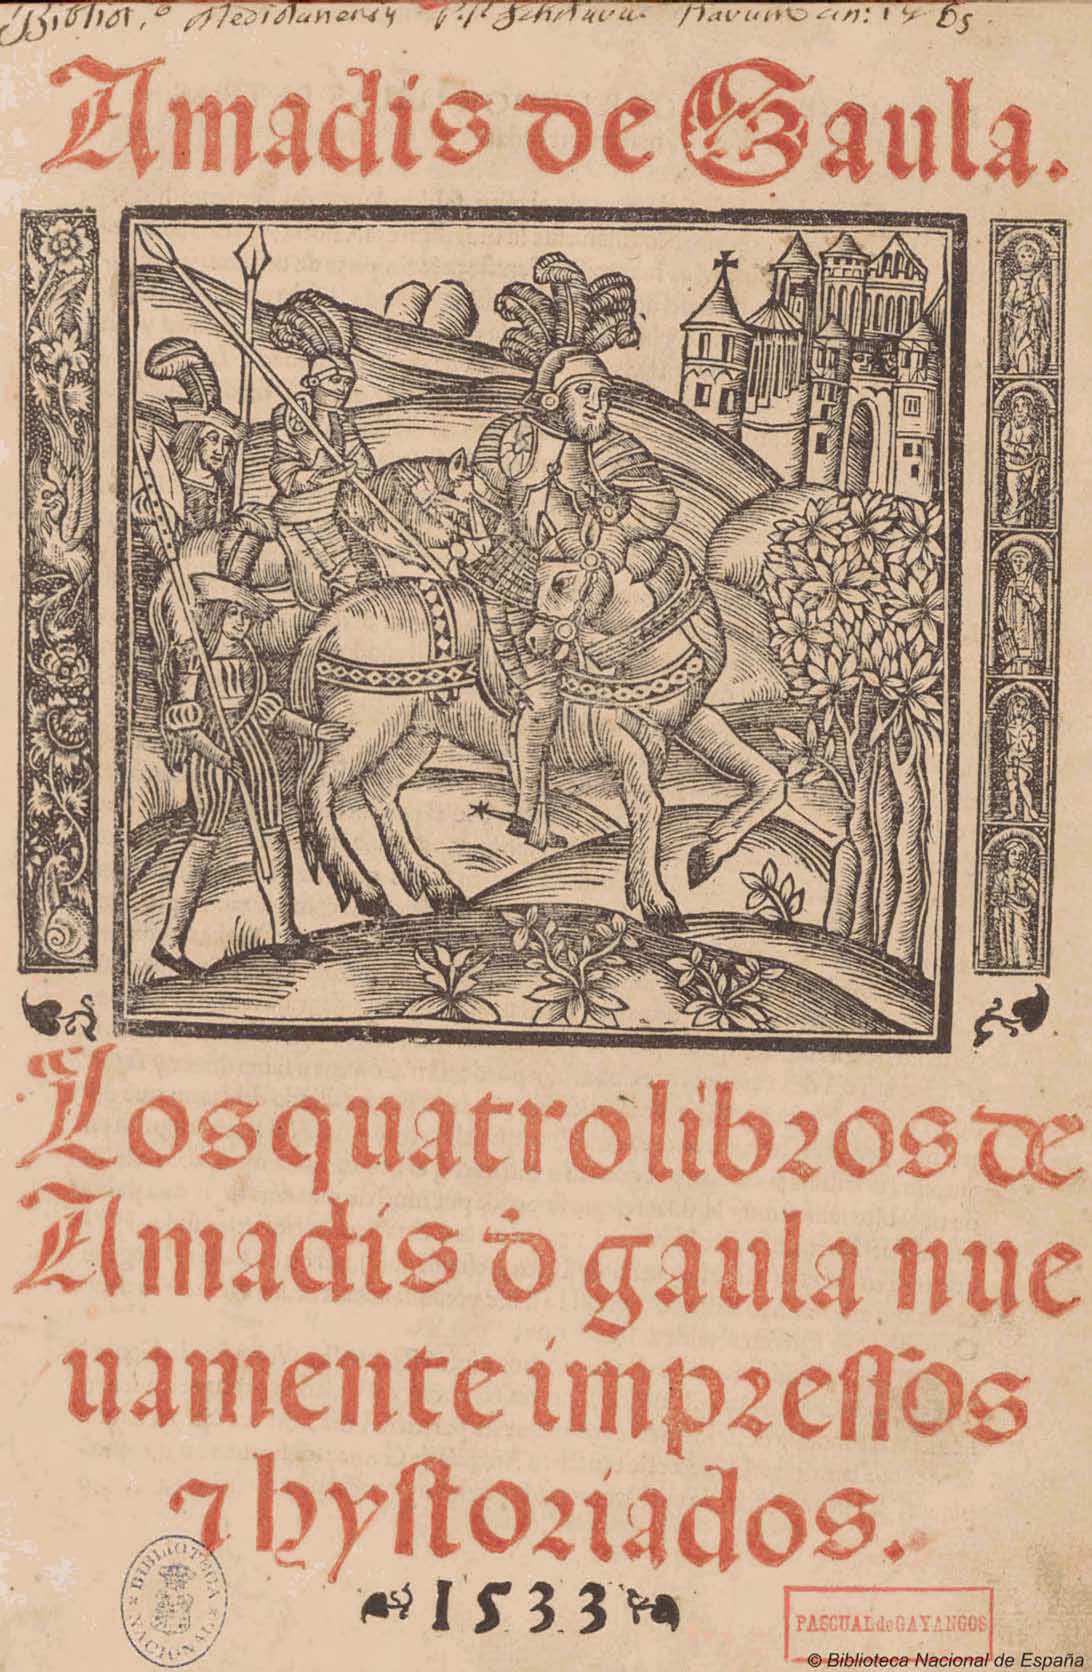 Bibliot.
Amadis de Gaula.
Los quatro libros de
Amadis đ gaula nue
uamente impressos
⁊ hystoriados.
1533
BIBLIOTECA NACIONAL
PASCUAL de GAYANGOS
© Biblioteca Nacional de España